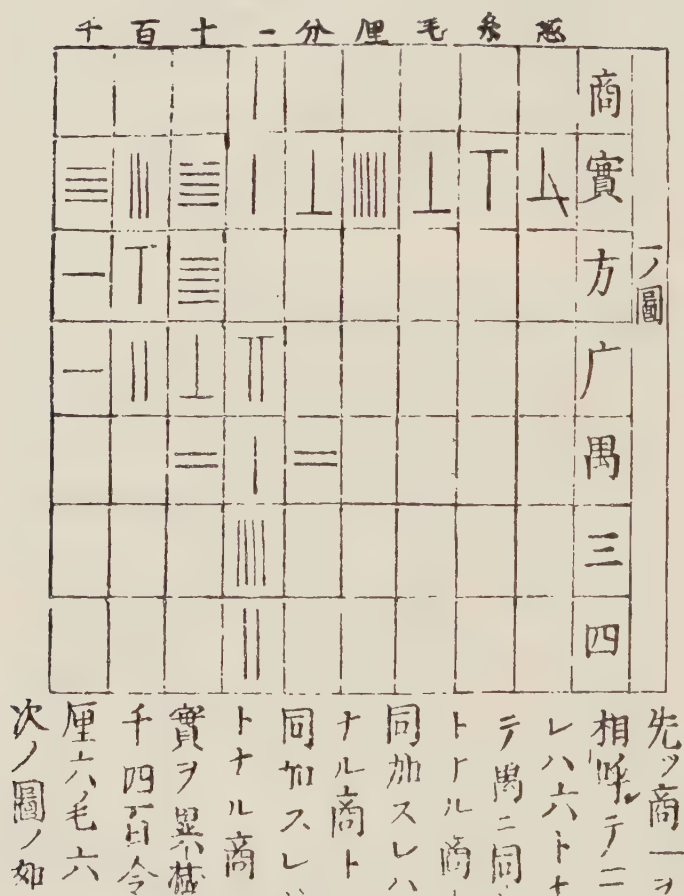 千百十一分厘毛糸忽
一ノ圖
商
實
方
广
禺
三
四
先ッ商一ヲ
相呼テ二
レハ六トナ
テ禺ニ同
トナル商
同加スレハ
ナル商ト
同加スレ
トナル商
實ヲ異減
千四百令
厘六毛六
次ノ圖ノ如